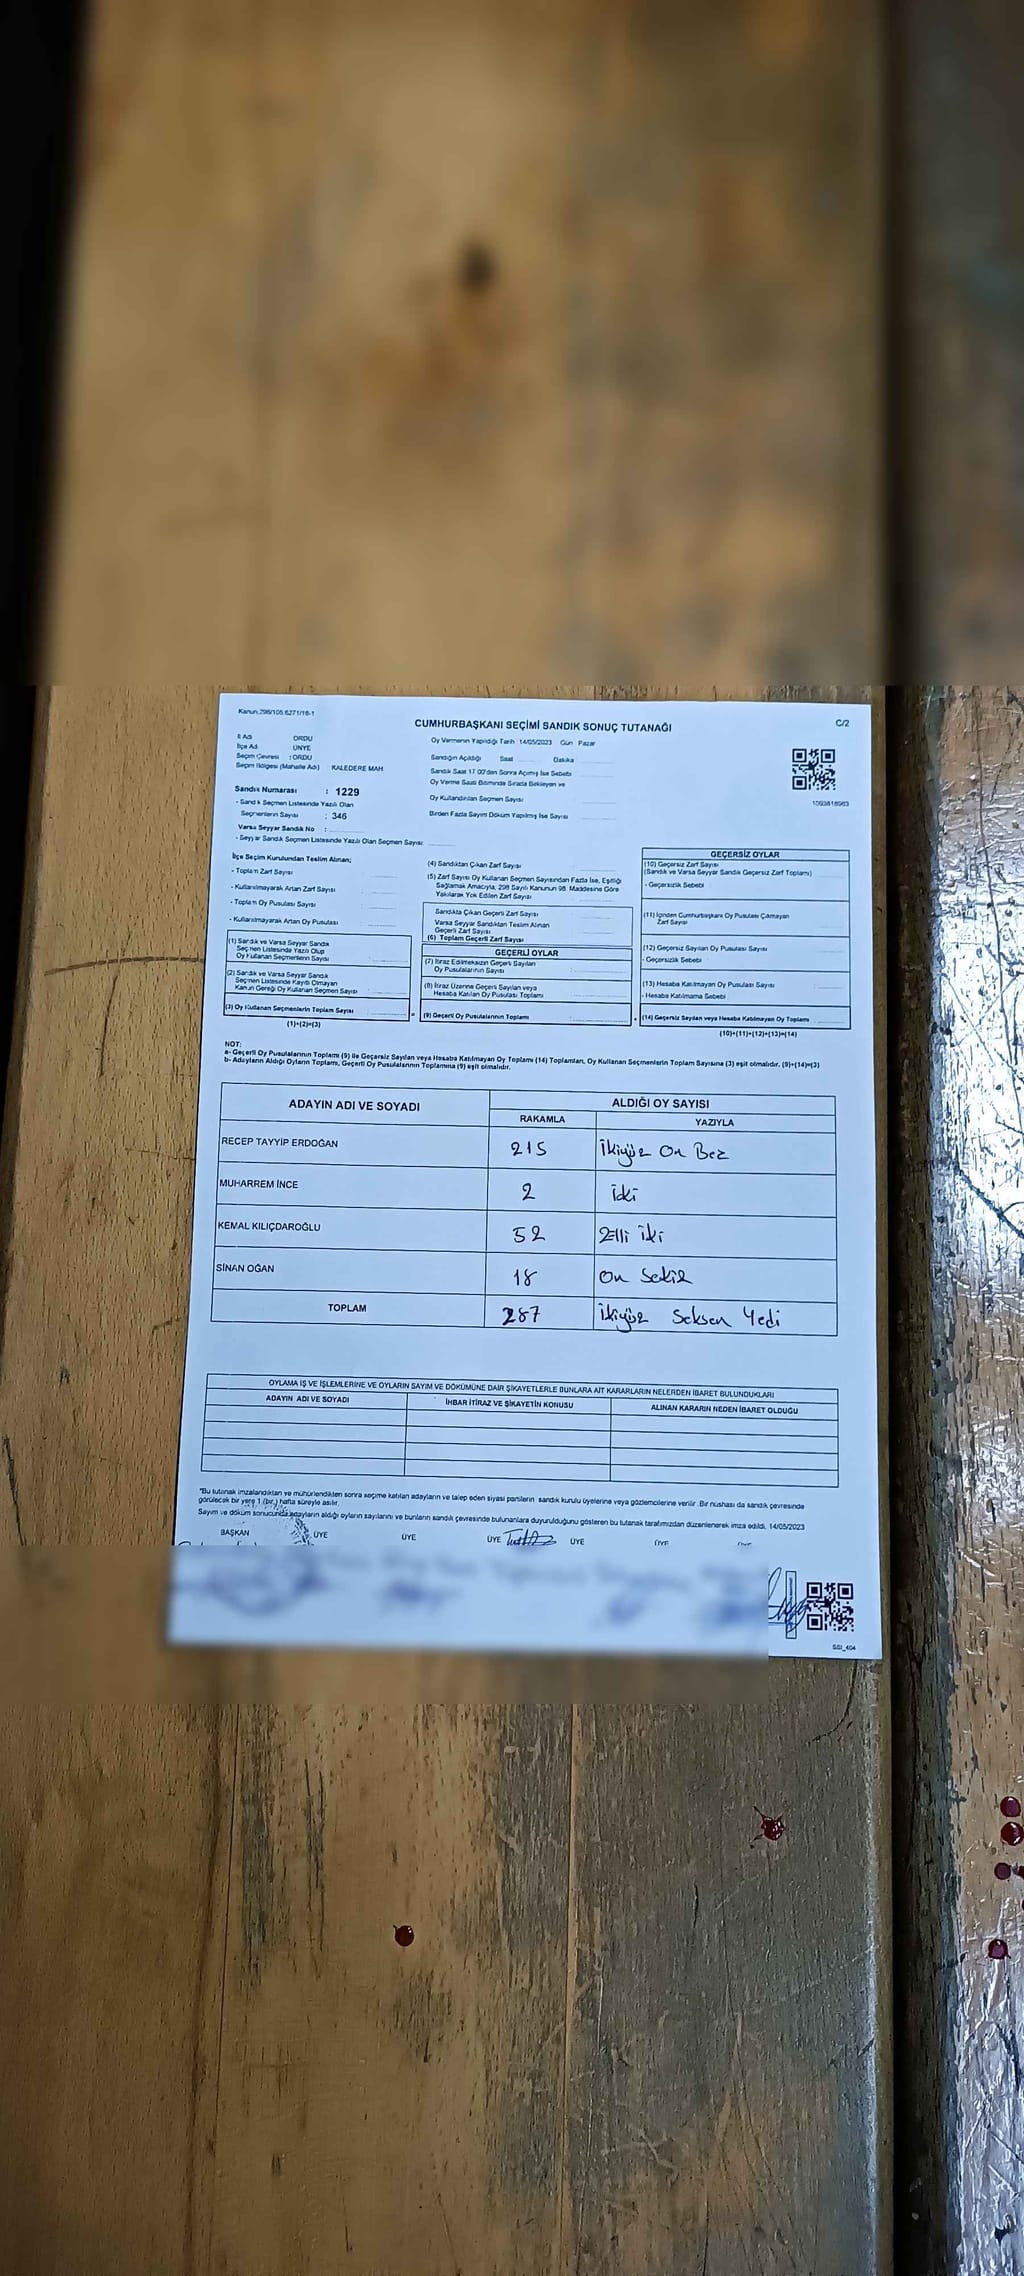 Kanun 298/105.6271/16-1
CUMHURBAŞKANI SEÇİMİ SANDIK SONUÇ TUTANAĞI
C/2
İl Adı ORDU
İlçe Adı ÜNYE
Seçim Çevresi : ORDU
Seçim Bölgesi (Mahalle Adı) KALEDERE MAH
Sandık Numarası : 1229
- Sandık Seçmen Listesinde Yazılı Olan
Seçmenlerin Sayısı : 346
Varsa Seyyar Sandık No :
- Seyyar Sandık Seçmen Listesinde Yazılı Olan Seçmen Sayısı:
Oy Vermenin Yapıldığı Tarih 14/05/2023 Gün Pazar
Sandığın Açıldığı Saat Dakika
Sandık Saat 17 00'den Sonra Açılmış İse Sebebi
Oy Verme Saati Bitiminde Sırada Bekleyen ve
Oy Kullandırılan Seçmen Sayısı
Birden Fazla Sayım Döküm Yapılmış İse Sayısı
1093818963
İlçe Seçim Kurulundan Teslim Alınan;
- Toplam Zarf Sayısı
- Kullanılmayarak Artan Zarf Sayısı
- Toplam Oy Pusulası Sayısı
- Kullanılmayarak Artan Oy Pusulası
(1) Sandık ve Varsa Seyyar Sandık
Seçmen Listesinde Yazılı Olup
Oy Kullanan Seçmenlerin Sayısı
(2) Sandık ve Varsa Seyyar Sandık
Seçmen Listesinde Kaydı Olmayan
Kanun Gereği Oy Kullanan Seçmen Sayısı
(3) Oy Kullanan Seçmenlerin Toplam Sayısı
(1)+(2)=(3)
(4) Sandıktan Çıkan Zarf Sayısı
(5) Zarf Sayısı Oy Kullanan Seçmen Sayısından Fazla İse, Eşitliği
Sağlamak Amacıyla, 298 Sayılı Kanunun 98. Maddesine Göre
Yakılarak Yok Edilen Zarf Sayısı
Sandıkta Çıkan Geçerli Zarf Sayısı
Varsa Seyyar Sandıktan Teslim Alınan
Geçerli Zarf Sayısı
(6) Toplam Geçerli Zarf Sayısı
GEÇERLİ OYLAR
(7) İtiraz Edilmeksizin Geçerli Sayılan
Oy Pusulalarının Sayısı
(8) İtiraz Üzerine Geçerli Sayılan veya
Hesaba Katılan Oy Pusulası Toplamı
(9) Geçerli Oy Pusulalarının Toplamı
GEÇERSİZ OYLAR
(10) Geçersiz Zarf Sayısı
(Sandık ve Varsa Seyyar Sandık Geçersiz Zarf Toplamı)
- Geçersizlik Sebebi
(11) İçinden Cumhurbaşkanı Oy Pusulası Çıkmayan
Zarf Sayısı
(12) Geçersiz Sayılan Oy Pusulası Sayısı
- Geçersizlik Sebebi
(13) Hesaba Katılmayan Oy Pusulası Sayısı
- Hesaba Katılmama Sebebi
(14) Geçersiz Sayılan veya Hesaba Katılmayan Oy Toplamı
(10)+(11)+(12)+(13)=(14)
NOT:
a- Geçerli Oy Pusulalarının Toplamı (9) ile Geçersiz Sayılan veya Hesaba Katılmayan Oy Toplamı (14) Toplamları, Oy Kullanan Seçmenlerin Toplam Sayısına (3) eşit olmalıdır. (9)+(14)=(3)
b- Adayların Aldığı Oyların Toplamı, Geçerli Oy Pusulalarının Toplamına (9) eşit olmalıdır.
ADAYIN ADI VE SOYADI ALDIĞI OY SAYISI
RAKAMLA YAZIYLA
RECEP TAYYİP ERDOĞAN 215 İkiyüz On Beş
MUHARREM İNCE 2 iki
KEMAL KILIÇDAROĞLU 52 Elli iki
SİNAN OĞAN 18 On Sekiz
TOPLAM 287 İkiyüz Seksen Yedi
OYLAMA İŞ VE İŞLEMLERİNE VE OYLARIN SAYIM VE DÖKÜMÜNE DAİR ŞİKAYETLERLE BUNLARA AİT KARARLARIN NELERDEN İBARET BULUNDUKLARI
ADAYIN ADI VE SOYADI İHBAR İTİRAZ VE ŞİKAYETİN KONUSU ALINAN KARARIN NEDEN İBARET OLDUĞU
"Bu tutanak imzalandıktan ve mühürlendikten sonra seçime katılan adayların ve talep eden siyasi partilerin sandık kurulu üyelerine veya gözlemcilerine verilir .Bir nüshası da sandık çevresinde
görülecek bir yere 1 (bir) hafta süreyle asılır.
Sayım ve döküm sonucunda adayların aldığı oyların sayılarını ve bunların sandık çevresinde bulunanlara duyurulduğunu gösteren bu tutanak tarafımızdan düzenlenerek imza edildi. 14/05/2023
BAŞKAN ÜYE ÜYE ÜYE ÜYE ÜYE ÜYE
SSI_404